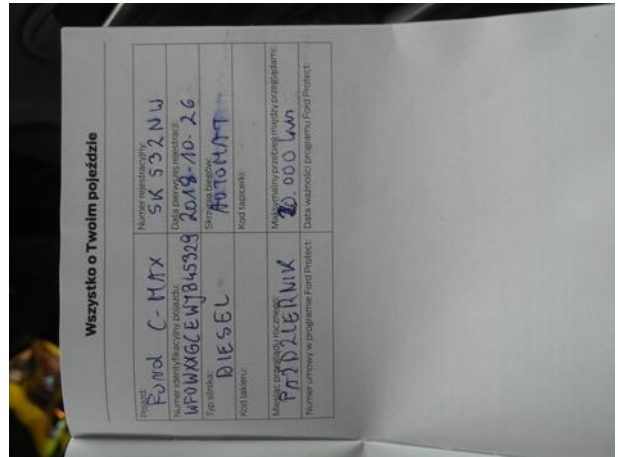 Wszystko o Twoim pojeździe
Pojazd:
FORD C-MAX
Numer rejestracyjny:
SK 532NW
Numer identyfikacyjny pojazdu:
WF0WXXGCEWJB45329
Data pierwszej rejestracji:
2018-10-26
Typ silnika:
DIESEL
Skrzynia biegów:
AUTOMAT
Kod lakieru:
Kod tapicerki:
Miesiąc przeglądu rocznego:
PAŹDZIERNIK
Maksymalny przebieg między przeglądami:
20.000 km
Numer umowy w programie Ford Protect:
Data ważności programu Ford Protect: